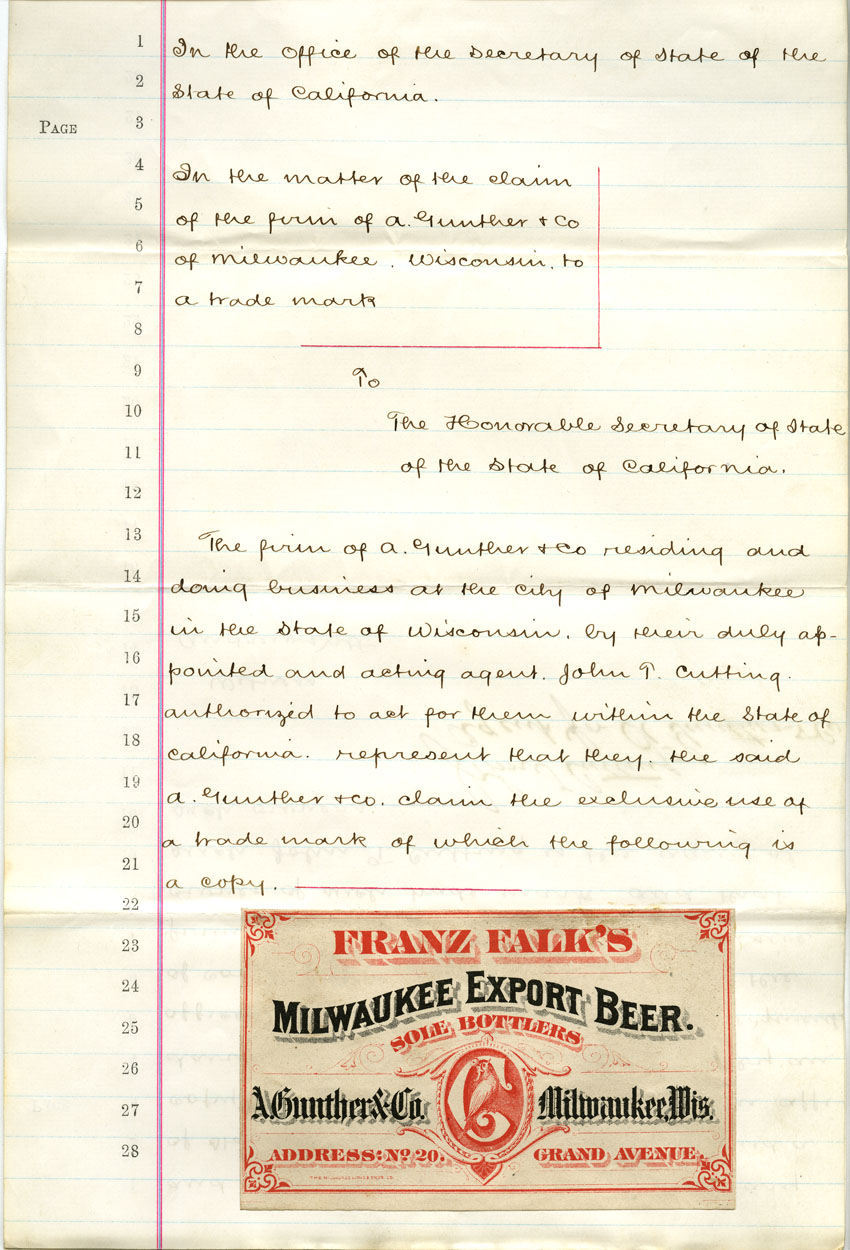 1 In the Office of the Secretary of State of the
2 State of California.
PAGE 3
4 In the matter of the claim
5 of the firm of A. Gunther & Co
6 of Milwaukee, Wisconsin, to
7 a trade mark
8
9 To
10 The Honorable Secretary of State
11 of the State of California.
12
13 The firm of A. Gunther & Co residing and
14 doing business at the city of Milwaukee
15 in the State of Wisconsin, by their duly ap-
16 pointed and acting agent, John T. Cutting.
17 authorized to act for them within the State of
18 California. represent that they, the said
19 A. Gunther & Co. claim the exclusive use of
20 a trade mark of which the following is
21 a copy.
22
23
24
25
26
27
28
FRANZ FALK'S
MILWAUKEE EXPORT BEER.
SOLE BOTTLERS
A. Gunther & Co. Milwaukee, Wis.
ADDRESS: No 20. GRAND AVENUE.